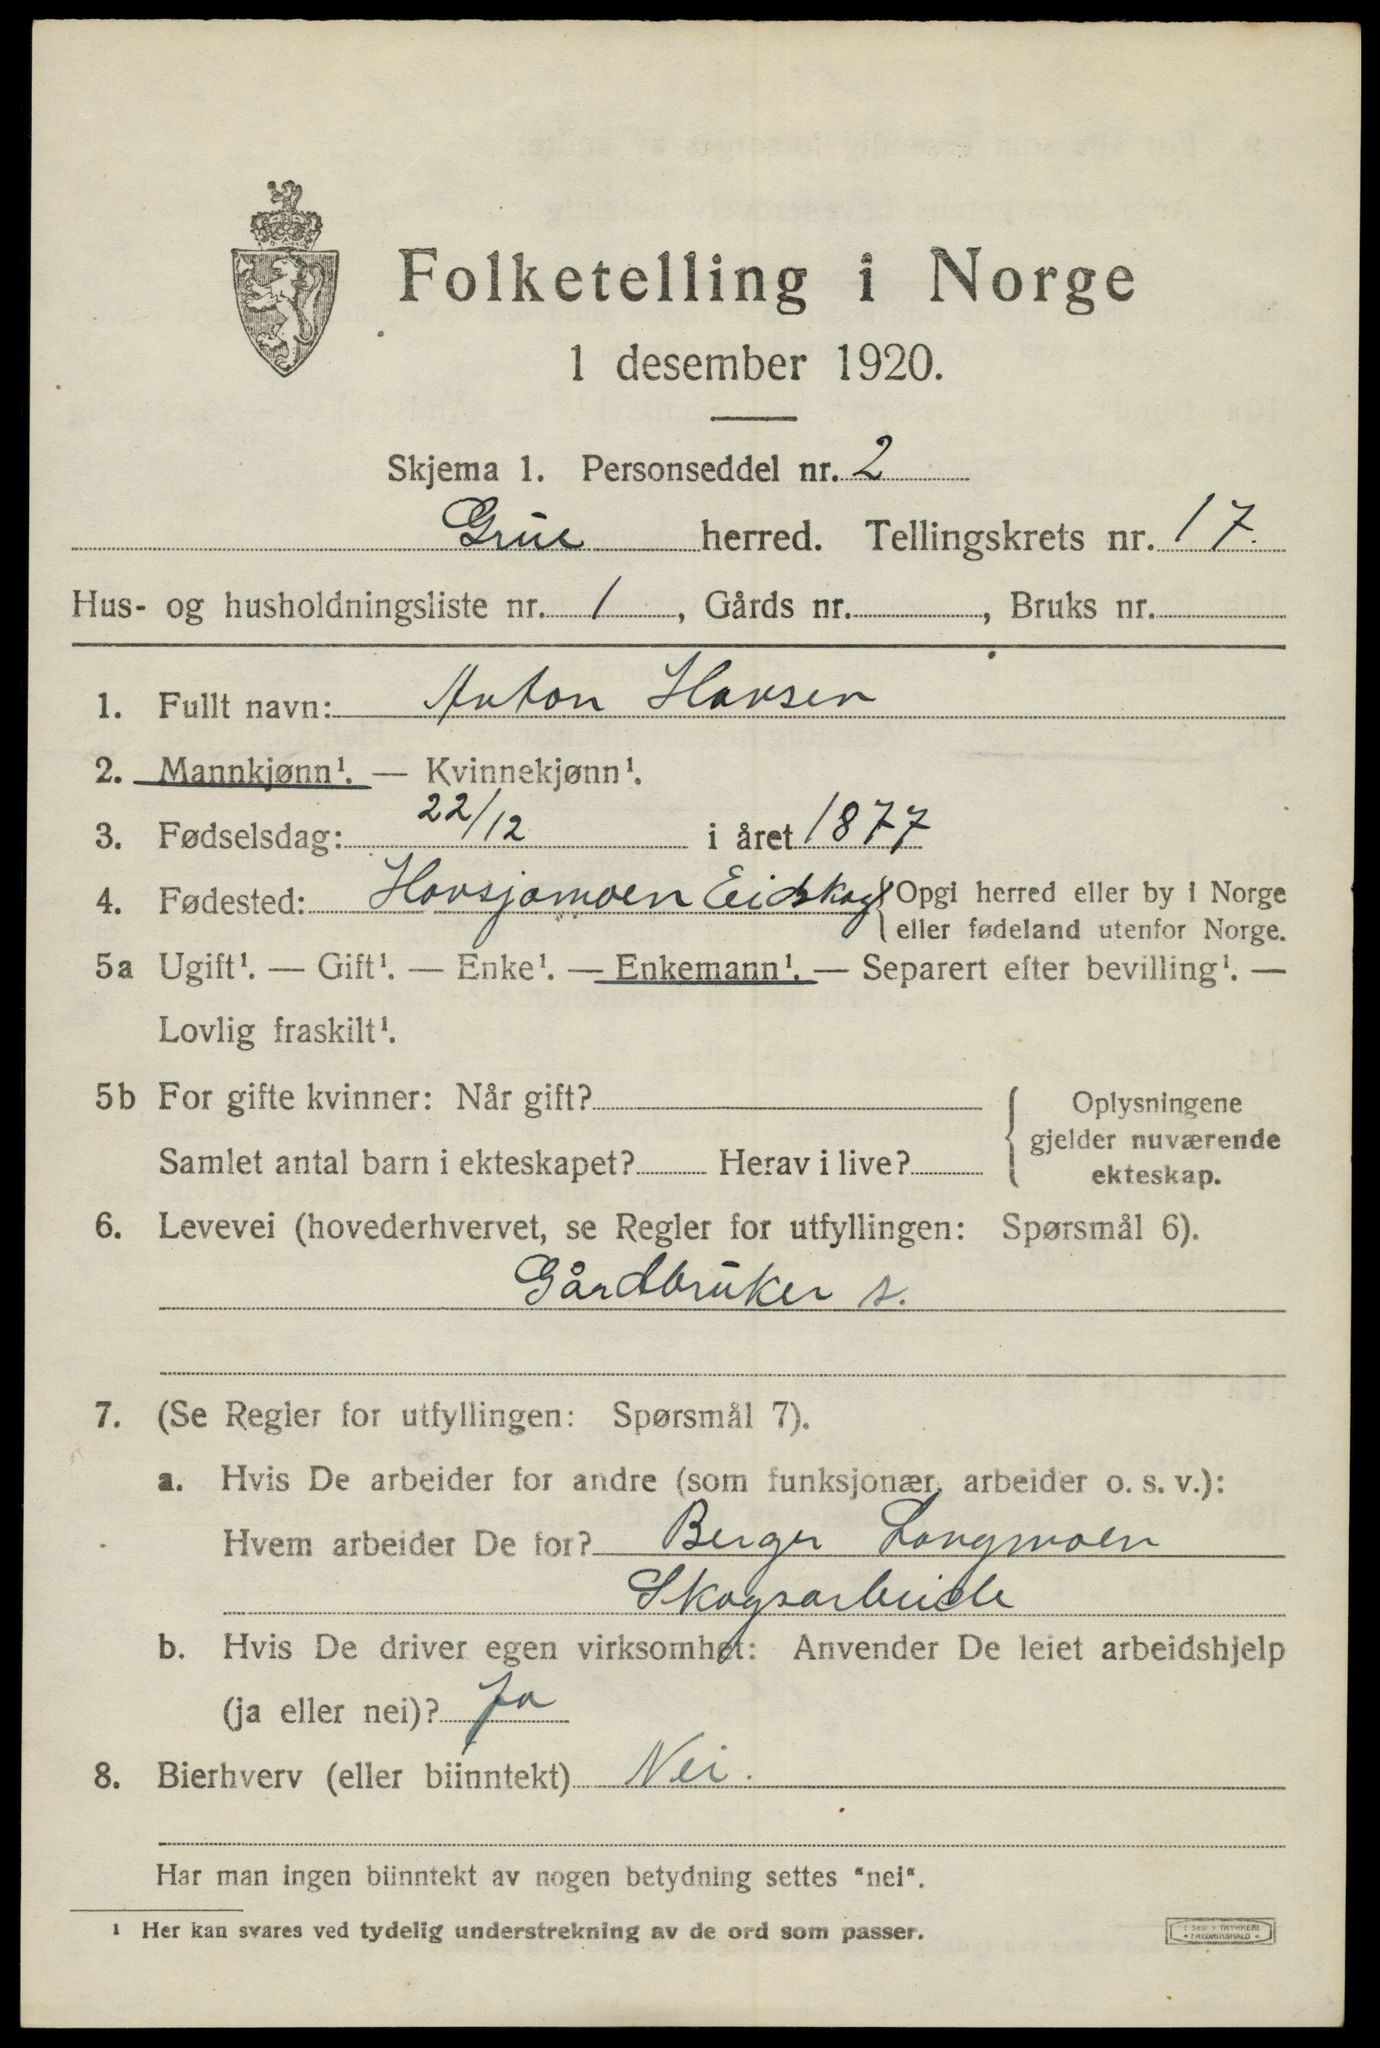 Folketelling i Norge
1 desember 1920.
Skjema 1. Personseddel nr. 2
Grue herred. Tellingskrets nr. 17.
Hus- og husholdningsliste nr. 1, Gårds nr. , Bruks nr.
1. Fullt navn: Anton Hansen
2. Mannkjønn¹. — Kvinnekjønn¹.
3. Fødselsdag: 22/12 i året 1877
4. Fødested: Hovsjømoen Eidskog { Opgi herred eller by i Norge
eller fødeland utenfor Norge.
5a Ugift¹. — Gift¹. — Enke¹. — Enkemann¹. — Separert efter bevilling¹. —
Lovlig fraskilt¹.
5b For gifte kvinner: Når gift? { Oplysningene
gjelder nuværende
Samlet antal barn i ekteskapet? Herav i live? ekteskap.
6. Levevei (hovederhvervet, se Regler for utfyllingen: Spørsmål 6).
Gårdbruker s.
7. (Se Regler for utfyllingen: Spørsmål 7).
a. Hvis De arbeider for andre (som funksjonær, arbeider o. s. v.):
Hvem arbeider De for? Berger Langmoen
Skogsarbeide
b. Hvis De driver egen virksomhet: Anvender De leiet arbeidshjelp
(ja eller nei)? Ja
8. Bierhverv (eller biinntekt) Nei.
Har man ingen biinntekt av nogen betydning settes "nei".
¹ Her kan svares ved tydelig understrekning av de ord som passer.